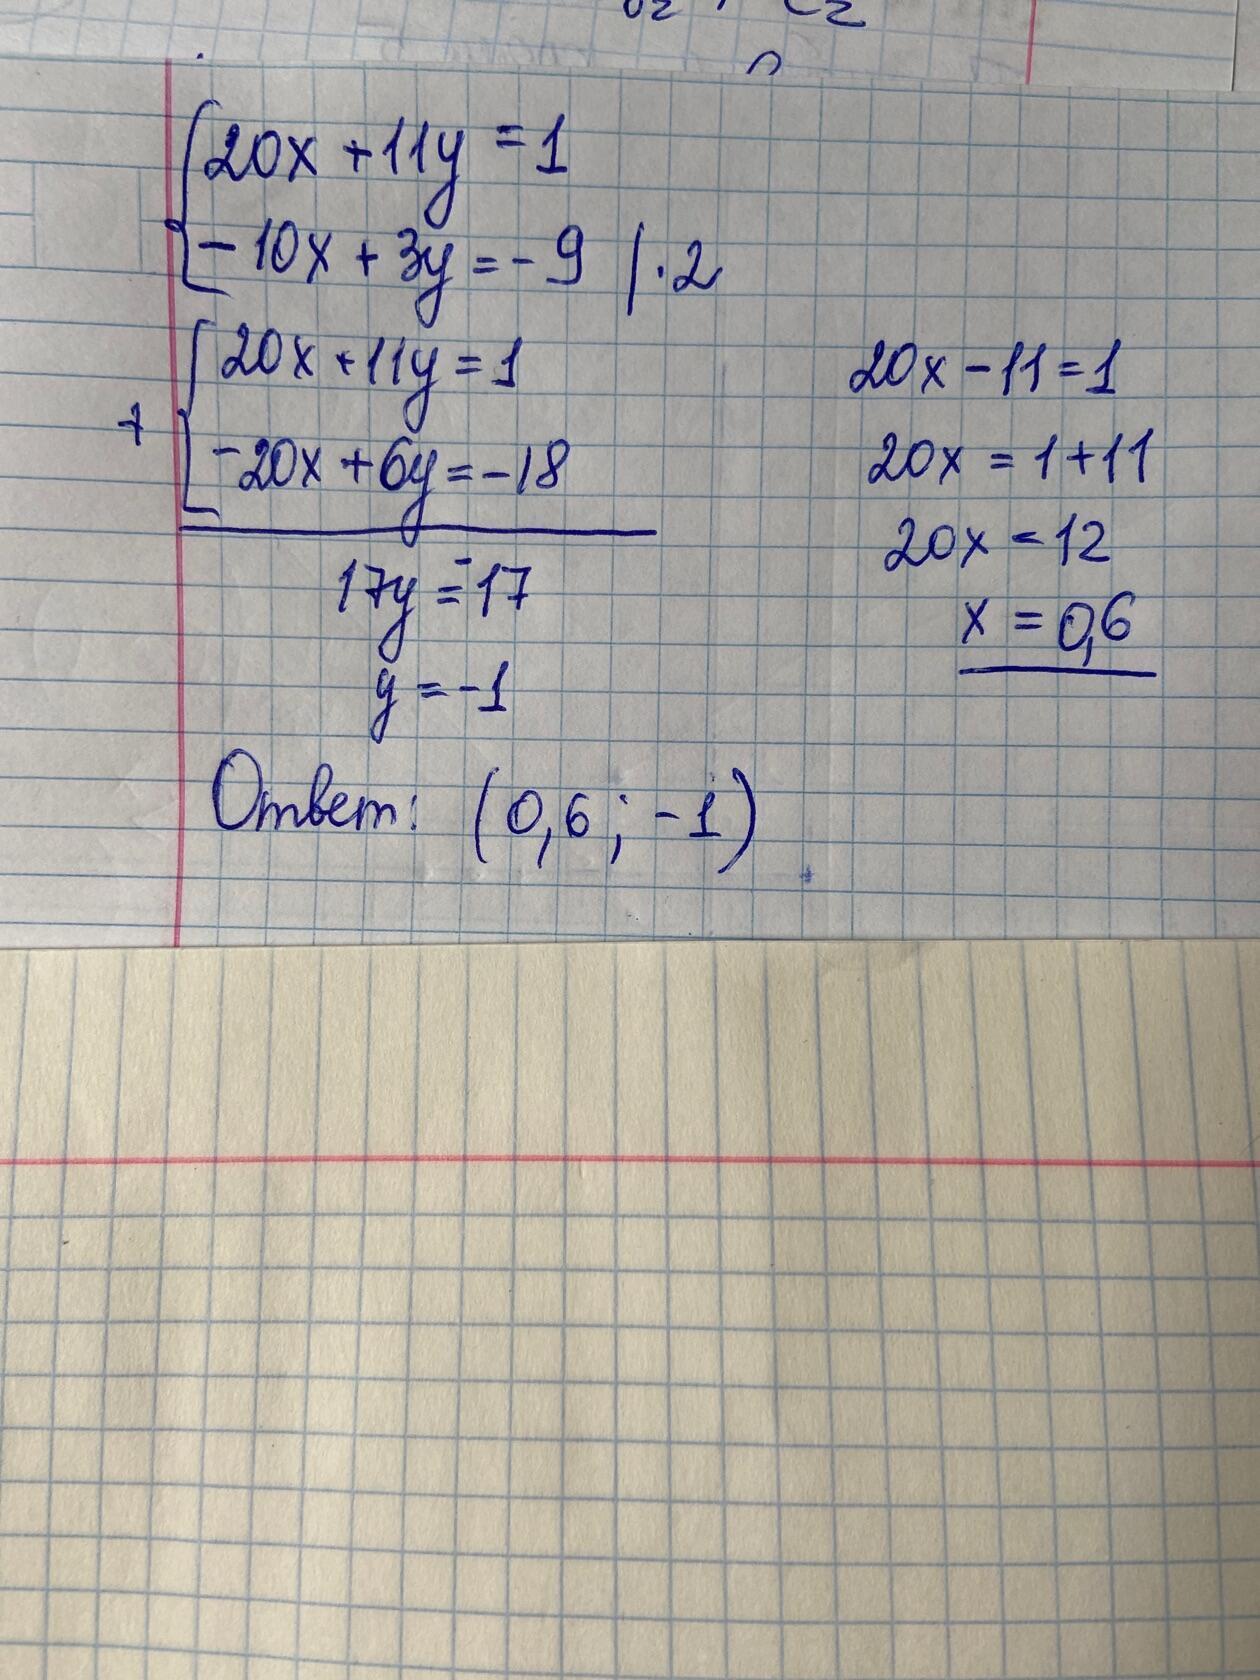 20x + 11y = 1
-10x + 3y = -9 | · 2
20x + 11y = 1
+ -20x + 6y = -18
17y = -17
y = -1
20x - 11 = 1
20x = 1 + 11
20x = 12
x = 0,6
Ответ: (0,6; -1)